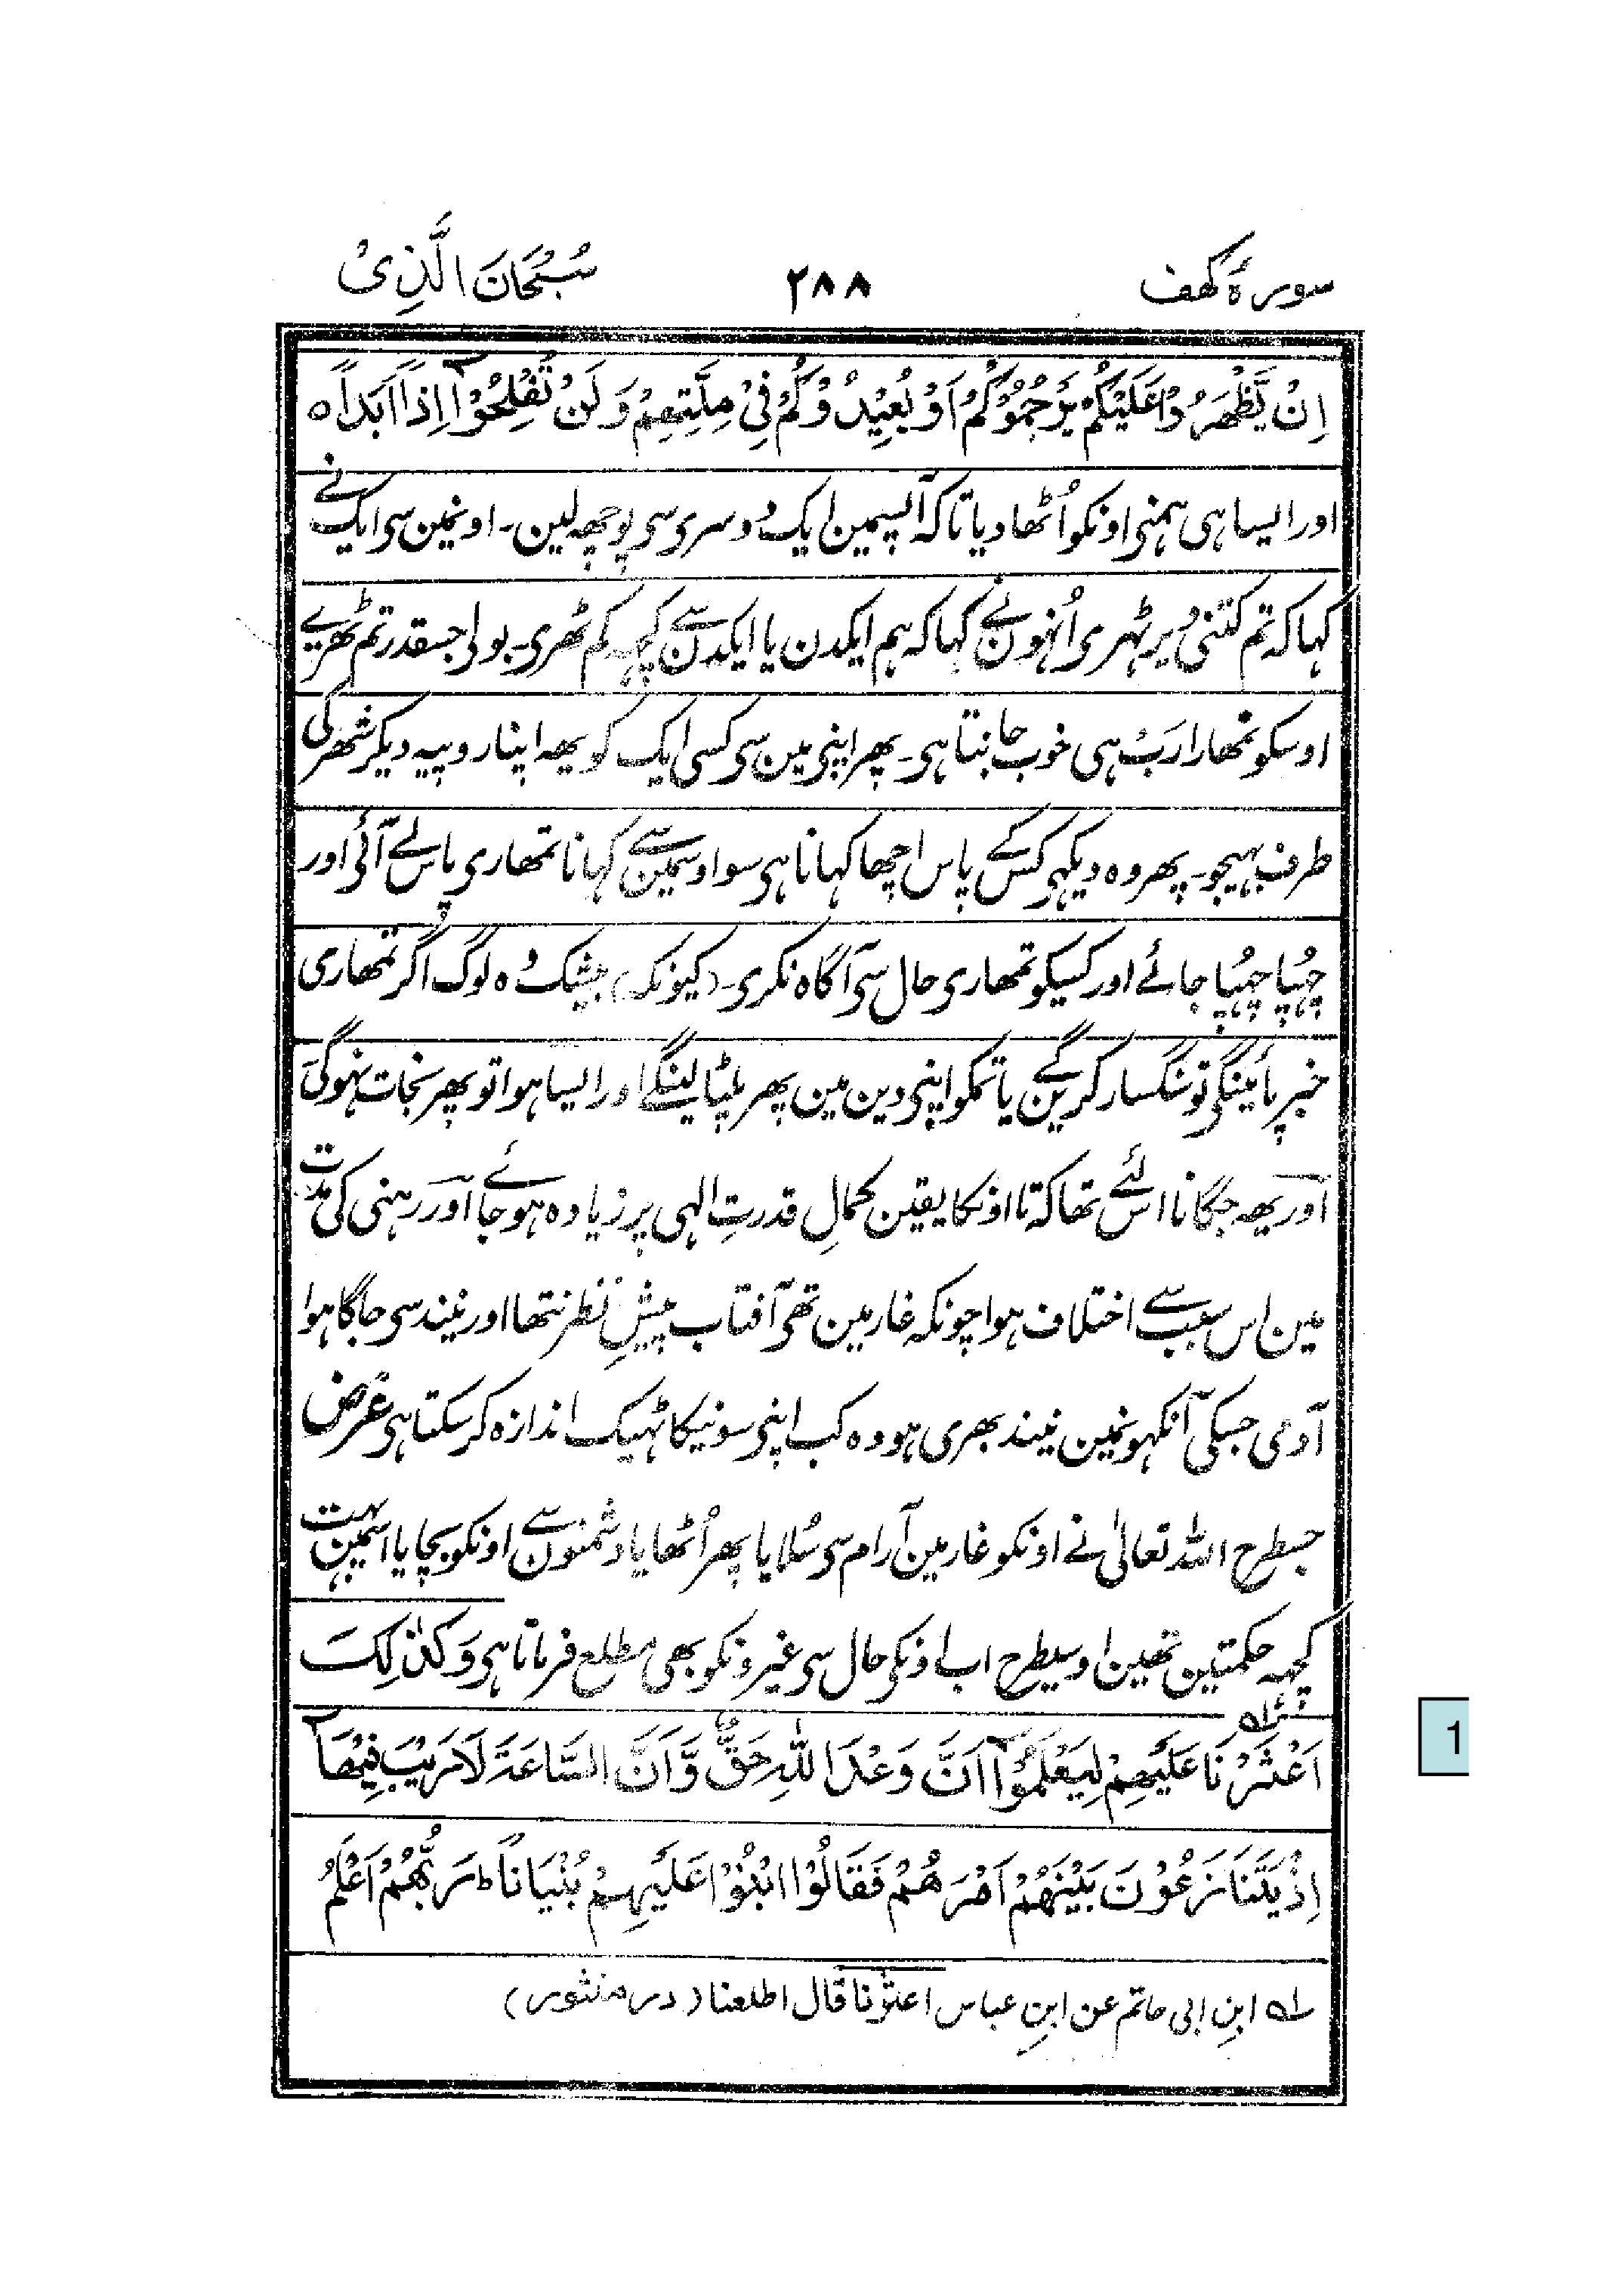 سورۂ کھف ۲۸۸ سُبْحَانَ الَّذِیْ
اِنْ یَّظْهَرُوْا عَلَیْكُمْ یَرْجُمُوْكُمْ اَوْ یُعِیْدُوْكُمْ فِیْ مِلَّتِهِمْ وَ لَنْ تُفْلِحُوْۤا اِذًا اَبَدًا ہ
اور ایسا ہی ہمنی اونکو اُٹھا دیا تا کہ آپسمین ایک دوسری سی پوچھہ لین۔ اونمین سی ایک نے
کہا کہ تم کتنی دیر ٹہری اُنہون نے کہا کہ ہم ایکدن یا ایکدن سے کچہہ کم ٹھری۔ بولی جسقدر تم ٹھرے
اوسکو تمھارا رَبْ ہی خوب جانتا ہی۔ پھر اپنی مین سی کسی ایک کو یھہ اپنا روپیہ دیکر شھر کی
طرف بہیجو۔ پھر وہ دیکہی کس کے پاس اچھا کہانا ہی سو اوسمین سے کہانا تمھاری پاس لے آئی اور
چہُپا چہُپا جائے اور کسیکو تمھاری حال سی آگاہ نکری۔ (کیونکہ) بیشک وُہ لوگ اگر تمھاری
خبر پأینگی تو سنگسار کرین گے یا تمکو اپنی دین مین پھر پلٹا لینگے اور ایسا ہوا تو پھر نجات نہو گی
اور یھہ جگانا اس لئے تھا کہ تا اونکا یقین کمالِ قدرتِ الہی پر زیادہ ہو جائے اور رہنی کی مدت
مین اس سبب سے اختلاف ہوا چونکہ غار مین تھی آفتاب پیشِ نظر نتھا اور نیند سی جاگا ہوا
آدمی جسکی آنکہونمین نیند بھری ہو وہ کب اپنی سونیکا ٹہیک اندازہ کر سکتا ہی غرض
جسطرح اللہ تعالیٰ نے اونکو غار مین آرام سی سُلایا پھر اُٹھایا دشمنون سے اونکو بچایا اسمین بہت
کچہہ حکمتین تھین اوسیطرح اب اونکی حال سی غیرونکو بھی مطلع فرماتا ہی وَ كَذٰلِكَ
اَعْثَرْنَا عَلَیْهِمْ لِیَعْلَمُوْۤا اَنَّ وَعْدَ اللّٰهِ حَقٌّ وَّ اَنَّ السَّاعَةَ لَا رَیْبَ فِیْهَا
اِذْ یَتَنَازَعُوْنَ بَیْنَهُمْ اَمْرَهُمْ فَقَالُوا ابْنُوْا عَلَیْهِمْ بُنْیَانًا ط رَبُّهُمْ اَعْلَمُ
لہ ابنِ ابی حاتم عن ابنِ عباس اعثرنا قال اطلعنا (در منثور)
1